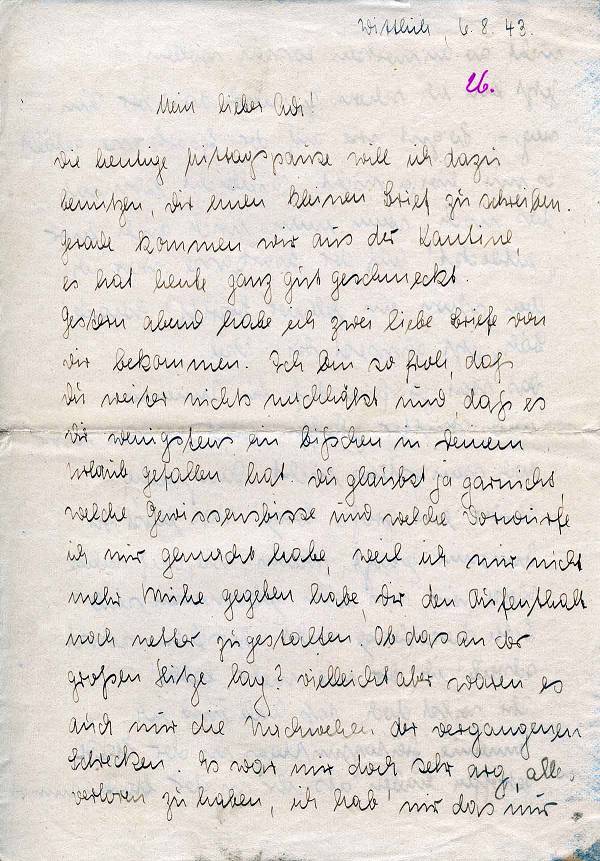 Wittlich, 6.8.43.
26.
Mein lieber Adi!
Die heutige Mittagspause will ich dazu
benützen, Dir einen kleinen Brief zu schreiben.
Gerade kommen wir aus der Kantine,
es hat heute ganz gut geschmeckt.
Gestern abend habe ich zwei liebe Briefe von
Dir bekommen. Ich bin so froh, daß
Du weiter nichts nachträgst und, daß es
Dir wenigstens ein bißchen in Deinem
Urlaub gefallen hat. Du glaubst ja garnicht,
welche Gewissensbisse und welche Vorwürfe
ich mir gemacht habe, weil ich mir nicht
mehr Mühe gegeben habe, Dir den Aufenthalt
noch netter zu gestalten. Ob das an der
großen Hitze lag? Vielleicht aber waren es
auch nur die Nachwehen der vergangenen
Schrecken. Es war mir doch sehr arg, alles
verloren zu haben, ich hab' mir das nur